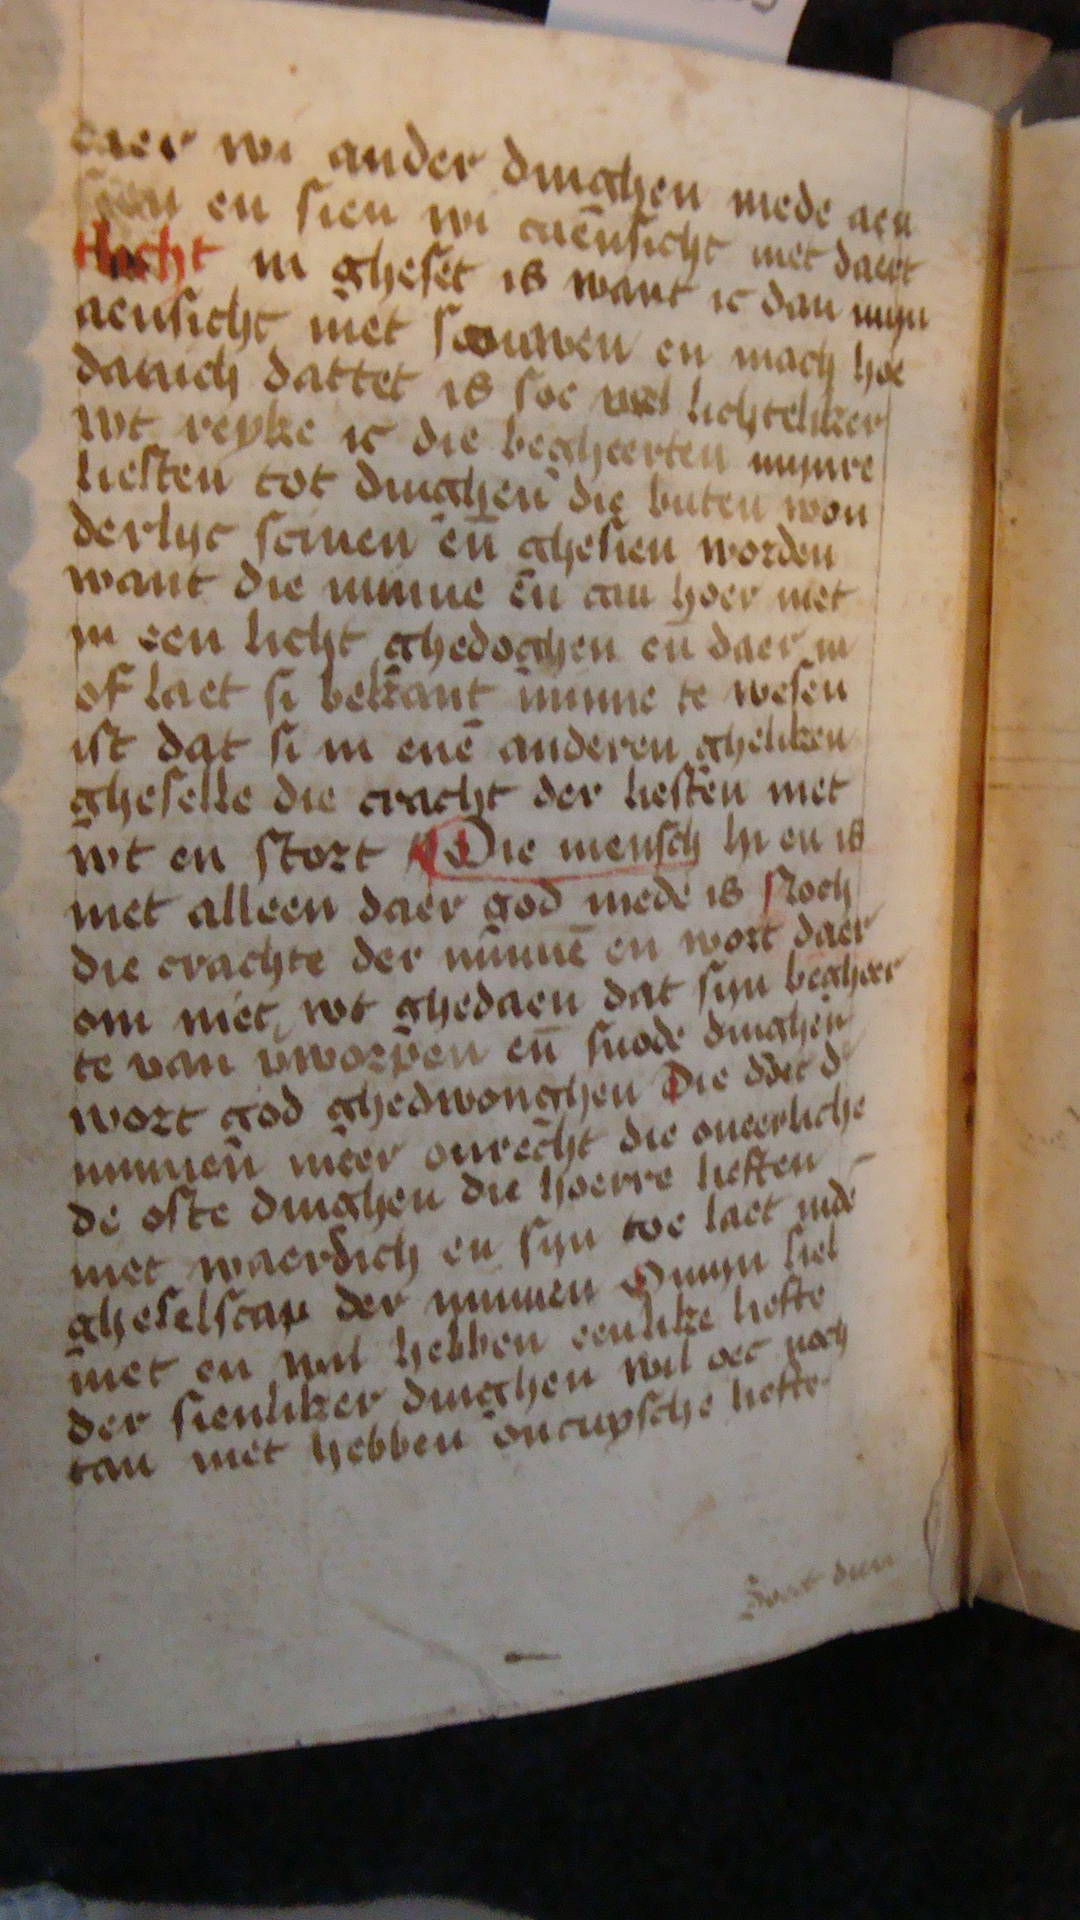 daer wi ander dinghen mede aen
sien en sien wi taēnsicht niet daert
ghesét is want ic dan mijn
aensicht niet scouwen en mach hoe
danich dattet is soe vel lichteliker
wt reyke ic die begheerten mijnre
liesten tot dinghen die buten won
derlijc scinen en̄ ghesien worden
want die minne en̄ can hoer niet
in een licht ghedoghen en̄ daer in
of laet si bekant minne te wesen
ist dat si in enē anderen gheliken
gheselle die cracht der liesten niet
wt en stort Die mensch hi en is
niet alleen daer god mede is Noch
die crachte der minnē en wort daer
om niet wt ghedaen dat sijn begheer
te van vworpen en̄ snode dinghen
wort god ghedwonghen Die doet d
minnen meer onrecht die oneerliche
de ofte dinghen die hoerre lieften
niet waerdich en sijn toe laet inde
gheselscap der minnen O mijn siel
niet en wil hebben eenlike liefte
der sienliker dinghen wil oec noch
tan niet hebben oncuysche liefte